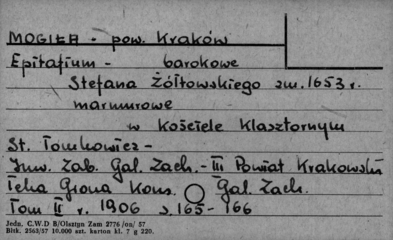 MOGIŁA - pow. Kraków
Epitafium - barokowe
Stefana Żółtowskiego zm. 1653 r.
marmurowe
w kościele klasztornym
St. Tomkowicz -
Inw. Zab. Gal. Zach. - III Powiat Krakowski
Teka Grona Kons. Gal. Zach.
Tom II r. 1906 s. 165-166
Jedn. C.W.D B/Olsztyn Zam 2776/on/ 57
Bltk. 2563/57 10.000 szt. karton kl. 7 g 220.